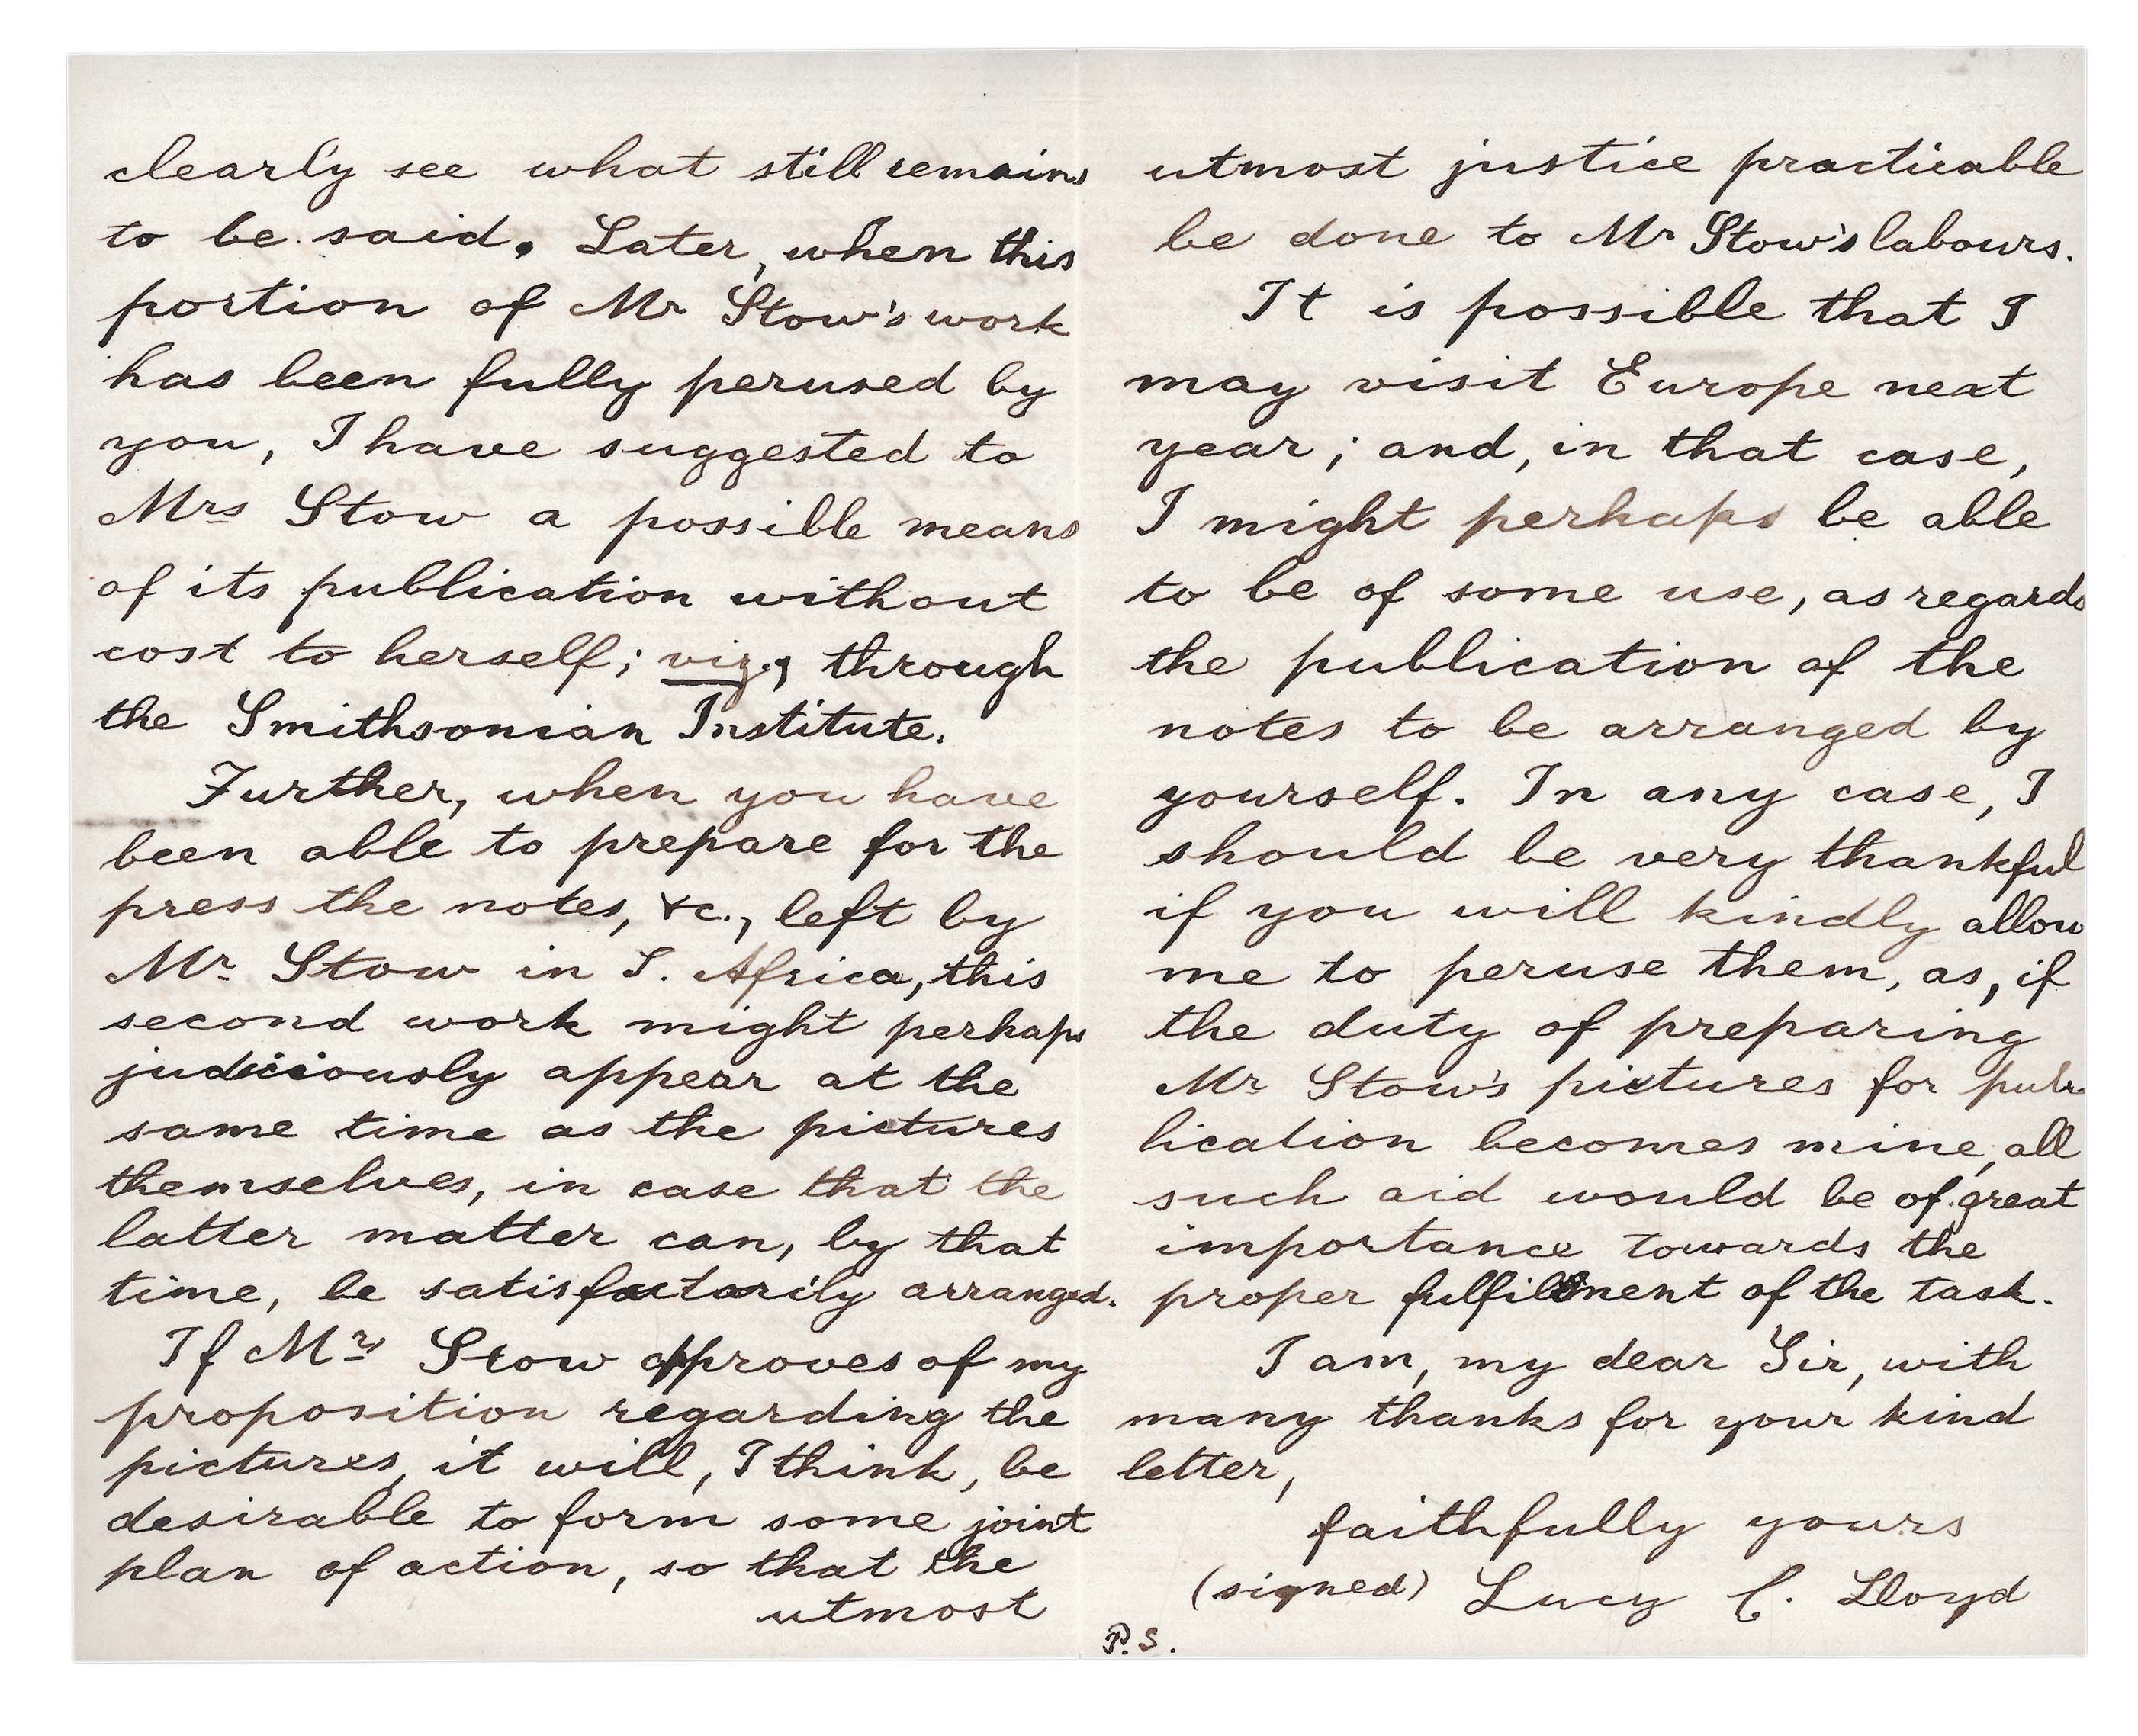 clearly see what still remains
to be said. Later, when this
portion of Mr Stow's work
has been fully perused by
you, I have suggested to
Mrs Stow a possible means
of its publication without
cost to herself; viz., through
the Smithsonian Institute.
Further, when you have
been able to prepare for the
press the notes, &c., left by
Mr. Stow in S. Africa, this
second work might perhaps
judiciously appear at the
same time as the pictures
themselves, in case that the
latter matter can, by that
time, be satisfactorily arranged.
If Mrs Stow approves of my
proposition regarding the
pictures, it will, I think, be
desirable to form some joint
plan of action, so that the
utmost
utmost justice practicable
be done to Mr Stow's labours.
It is possible that I
may visit Europe next
year; and, in that case,
I might perhaps be able
to be of some use, as regards
the publication of the
notes to be arranged by
yourself. In any case, I
should be very thankful
if you will kindly allow
me to peruse them, as, if
the duty of preparing
Mr Stow's pictures for pub-
lication becomes mine, all
such aid would be of great
importance towards the
proper fulfilment of the task.
I am, my dear Sir, with
many thanks for your kind
letter,
faithfully yours
(signed) Lucy C. Lloyd
P.S.